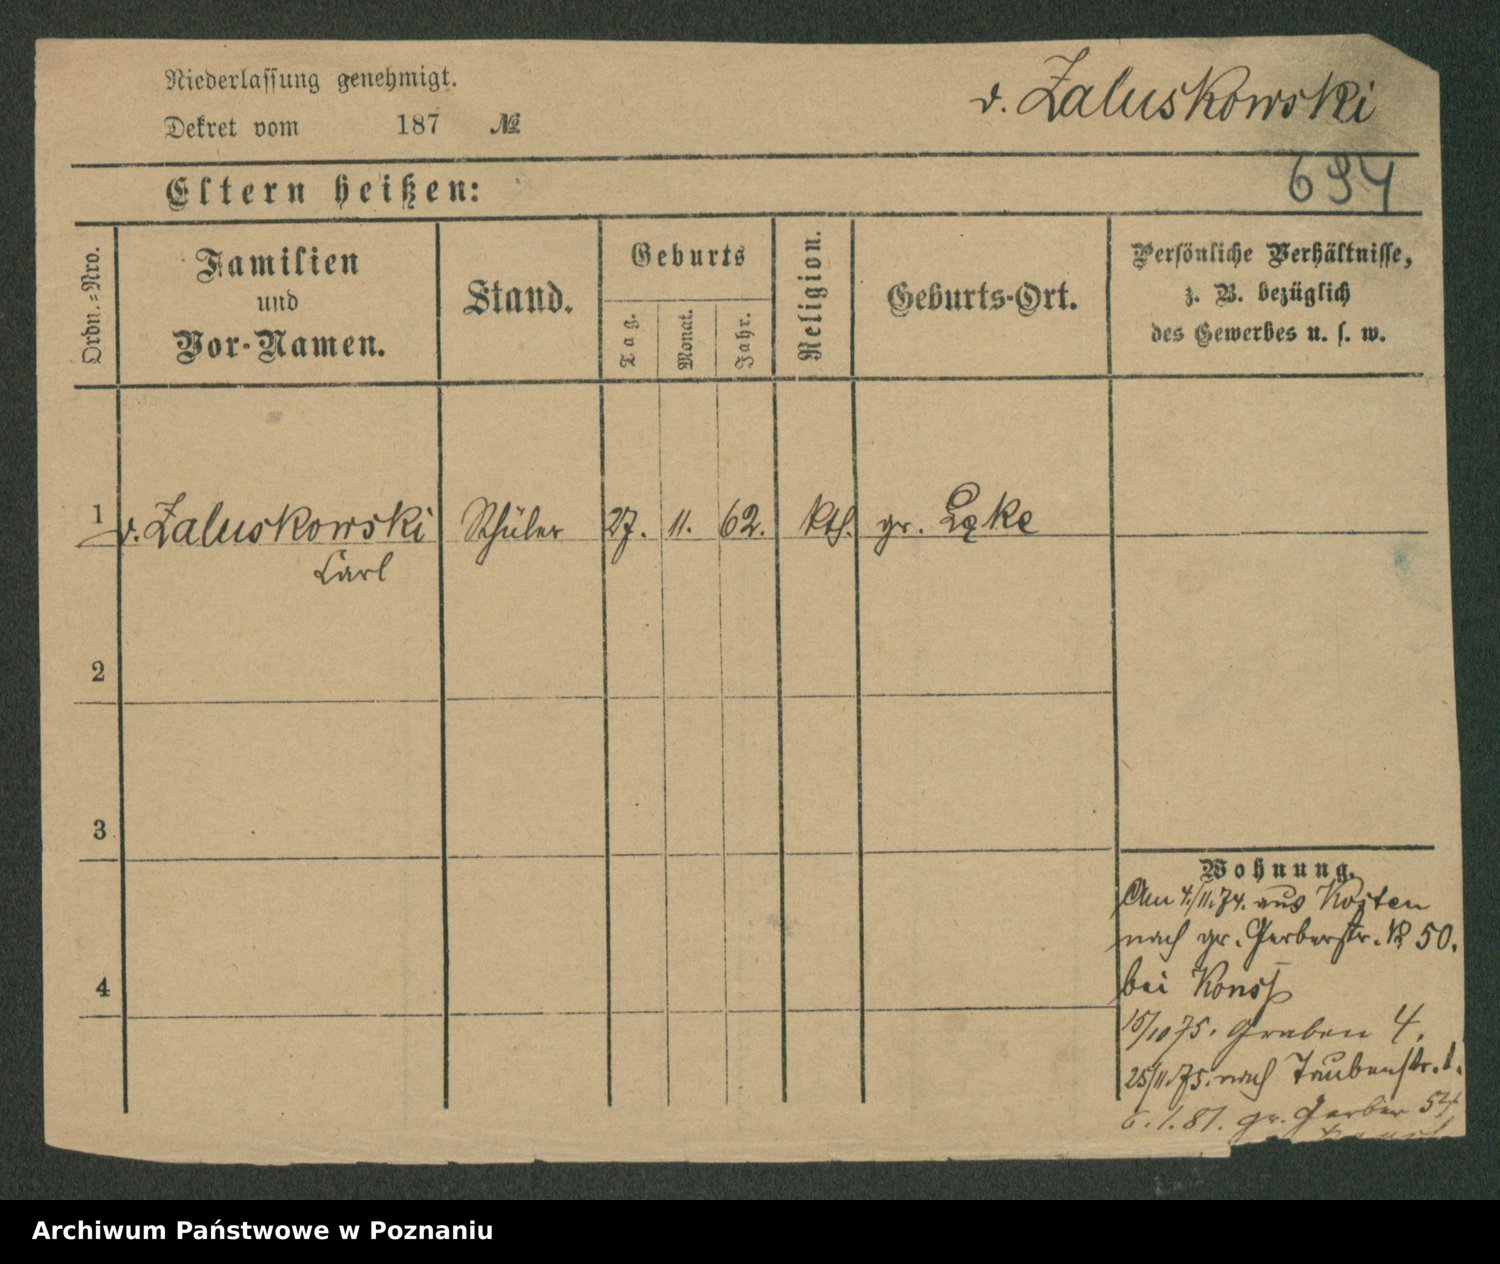 Niederlassung genehmigt.
v. Zaluskowski
Dekret vom 187 №
694
Eltern heißen:
Ordn.=Nro.
Familien
und
Vor-Namen.
Stand.
Geburts
Tag.
Monat.
Jahr.
Religion.
Geburts-Ort.
Persönliche Verhältnisse,
z. B. bezüglich
des Gewerbes u. s. w.
1 v. Zaluskowski Schüler 27. 11. 62. kth. gr. Lęke
Carl
2
3
4
Wohnung.
Am 4./11.74. aus Kosten
nach gr. Gerberstr. № 50.
bei
15/10 75. Graben 4.
25/11.75. nach Taubenstr. 1.
6.1.81. gr. Gerber
Archiwum Państwowe w Poznaniu